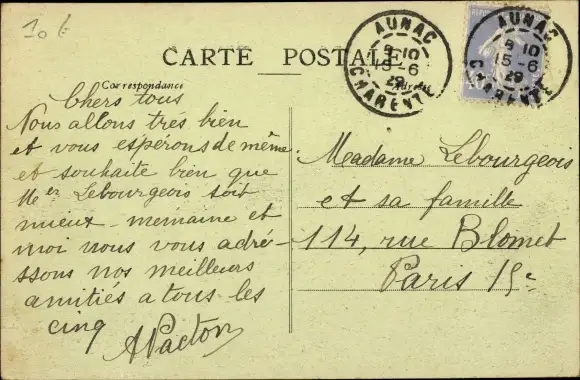 10 €
CARTE POSTALE
Correspondance
AUNAC
8 10
15-6
29
CHARENTE
AUNAC
8 10
15-6
29
CHARENTE
Chers tous
Nous allons très bien
et vous espérons de même
et souhaite bien que
Mer Lebourgeois soit
mieux - memaine et
moi nous vous adré-
ssons nos meilleurs
amitiés a tous les
cinq
APacton
Madame Lebourgeois
et sa famille
114, rue Blomet
Paris 15e